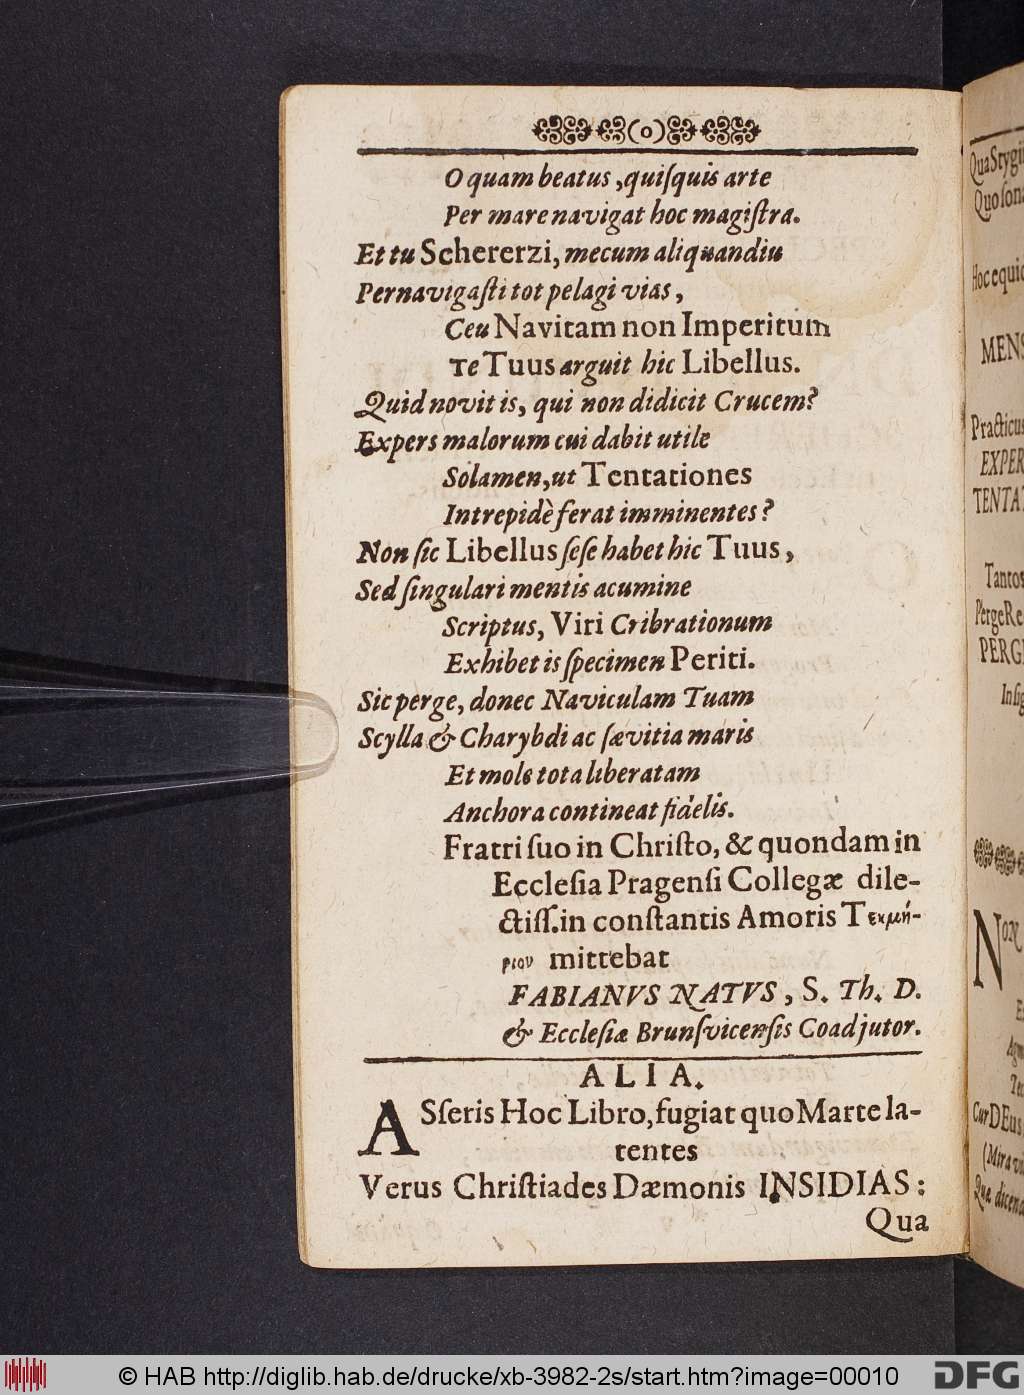 (o)
O quam beatus, quiſquis arte
Per mare navigat hoc magiſtra.
Et tu Schererzi, mecum aliquandiu
Pernavigaſti tot pelagi vias,
Ceu Navitam non Imperitum
Te Tuus arguit hic Libellus.
Quid novit is, qui non didicit Crucem?
Expers malorum cui dabit utile
Solamen, ut Tentationes
Intrepidè ferat imminentes?
Non ſic Libellus ſeſe habet hic Tuus,
Sed ſingulari mentis acumine
Scriptus, Viri Cribrationum
Exhibet is ſpecimen Periti.
Sic perge, donec Naviculam Tuam
Scylla & Charybdi ac ſævitia maris
Et mole tota liberatam
Anchora contineat fidelis.
Fratri ſuo in Chriſto, & quondam in
Eccleſia Pragenſi Collegæ dile-
ctiſſ. in conſtantis Amoris Τεκμή-
ριον mittebat
FABIANVS NATVS, S. Th. D.
& Eccleſiæ Brunſvicenſis Coadjutor.
ALIA.
ASſeris Hoc Libro, fugiat quo Marte la-
tentes
Verus Chriſtiades Dæmonis INSIDIAS:
Qua
Qua Stygi
Quo ſona
Hoc equi
MENS
Practicus
EXPER
TENTAT
Tantos
Perge Re
PERG
Inſig
Non
Agm
Te
Cur DEus
(Mira
Quæ dicen
© HAB http://diglib.hab.de/drucke/xb-3982-2s/start.htm?image=00010
DFG